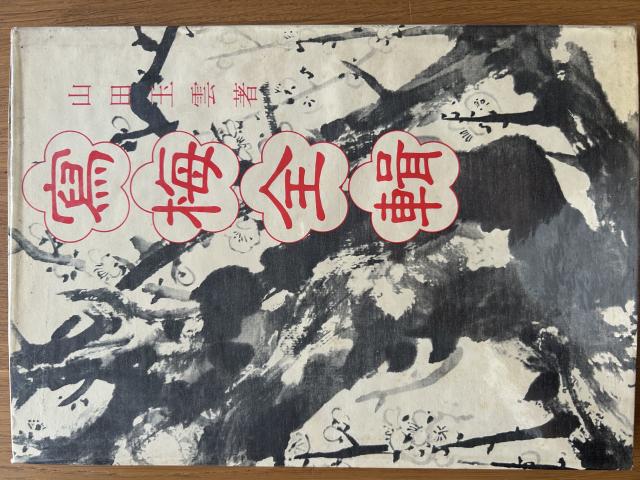 山田玉雲著
寫梅全輯